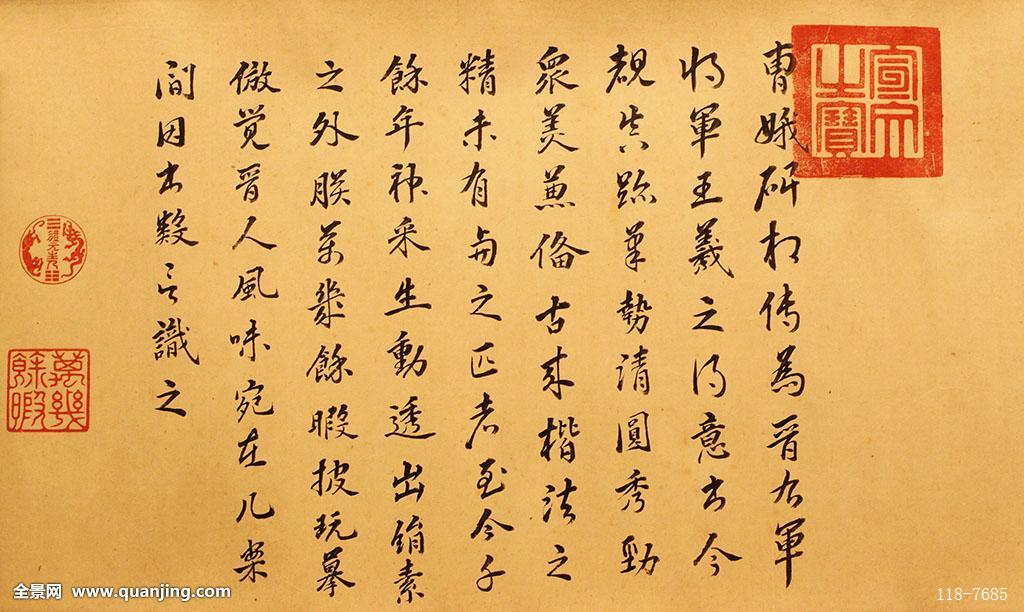 宣文之寶
曹娥碑相傳為晉右軍
將軍王羲之得意書今
覩真跡筆勢清圓秀勁
衆美兼備古來楷法之
精未有與之匹者至今千
餘年神采生動透出絹素
之外朕萬幾餘暇披玩摹
倣覺晉人風味宛在几案
間因書數言識之
萬幾餘暇
全景网 www.quanjing.com
118-7685